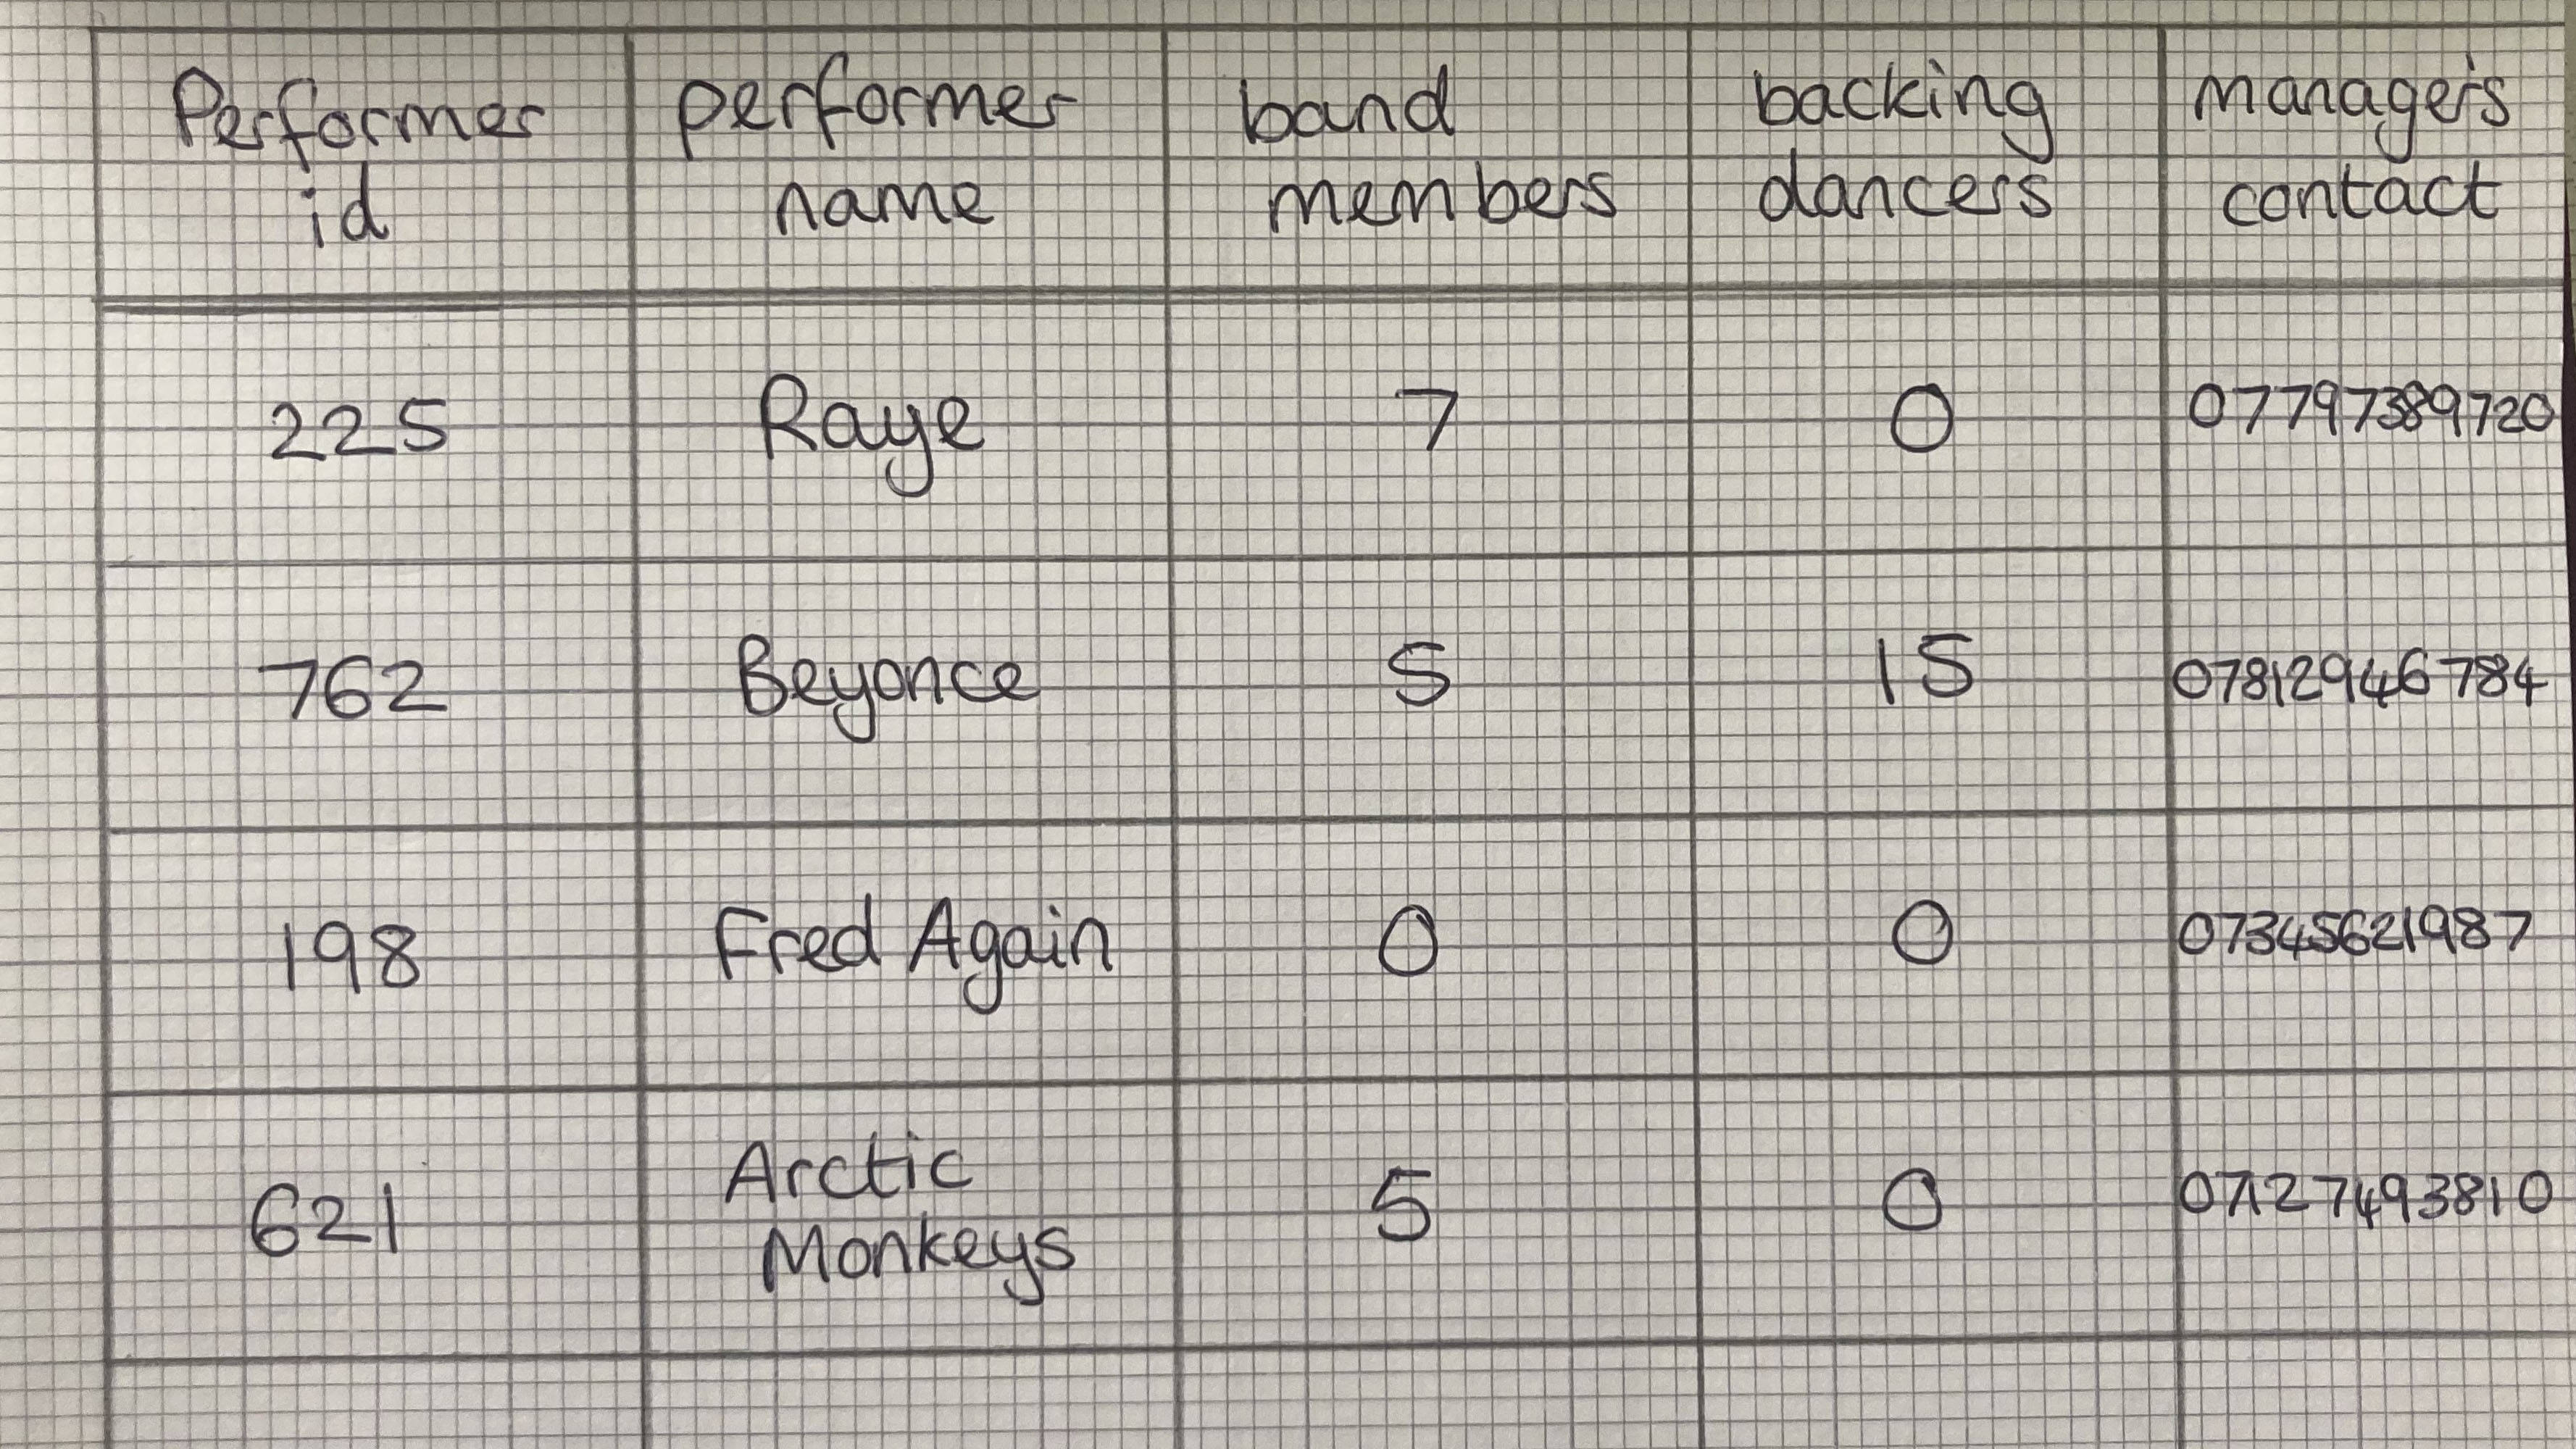 Performer id
performer name
band members
backing dancers
manager's contact
225 Raye 7 0 07797389720
762 Beyonce 5 15 07812946784
198 Fred Again 0 0 07345621987
621 Arctic Monkeys 5 0 07127493810